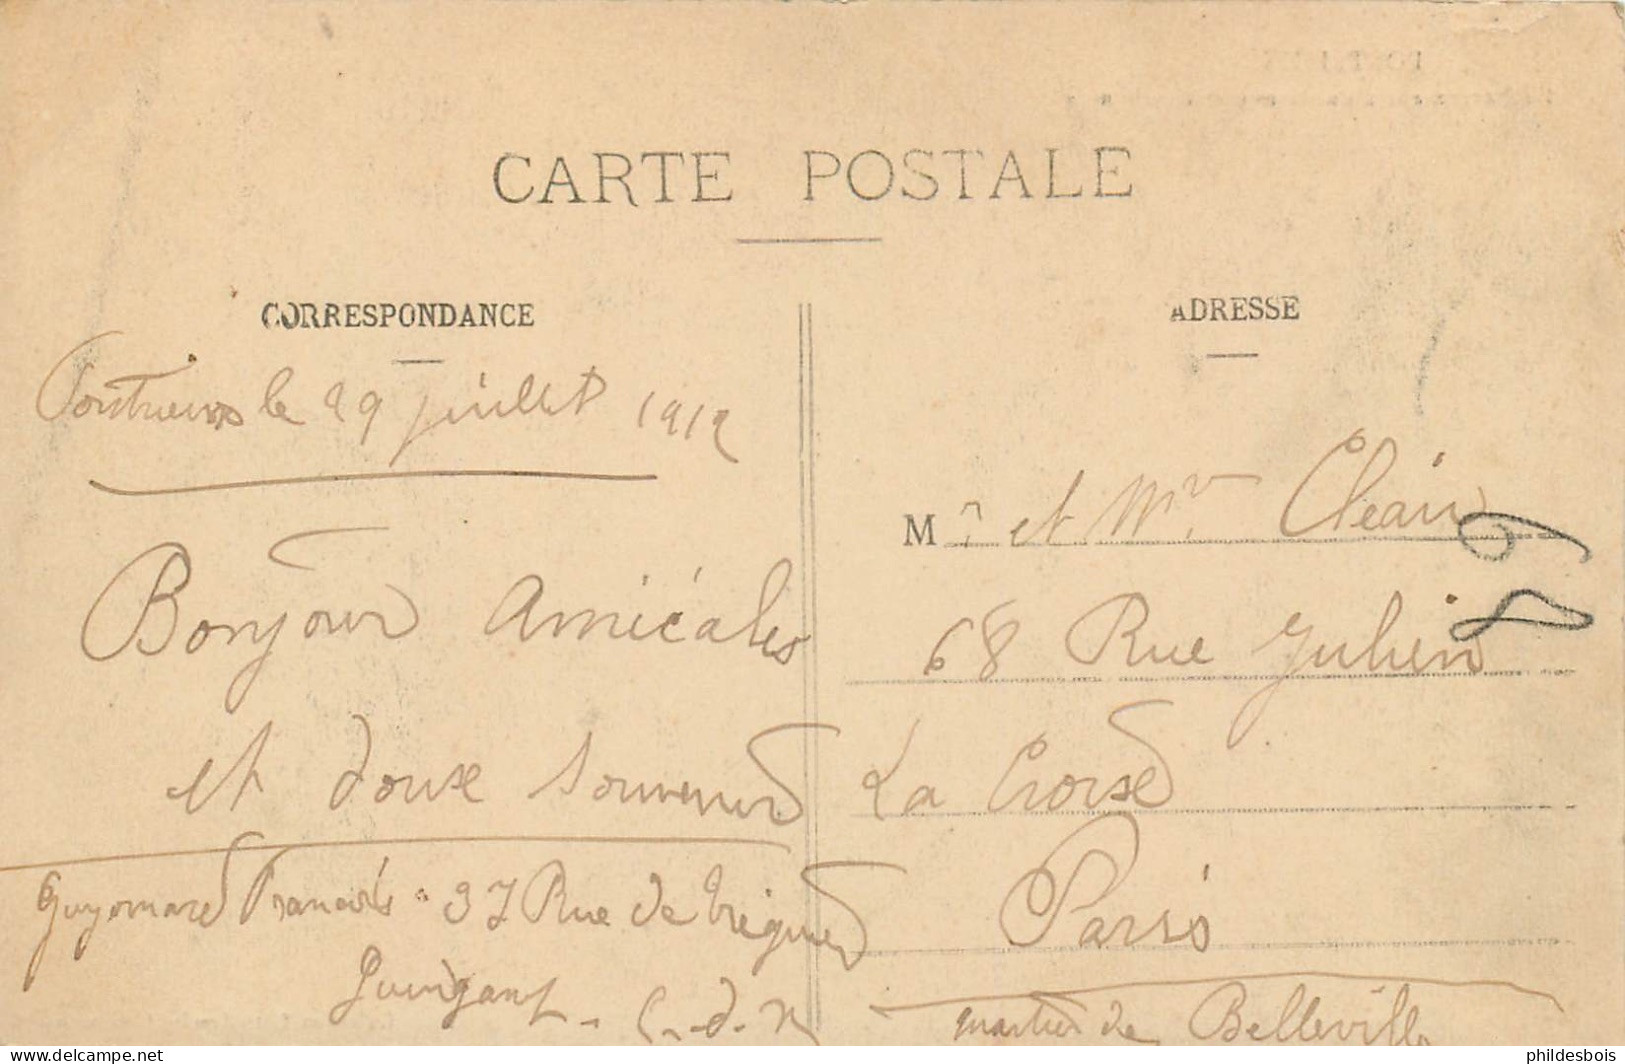 CARTE POSTALE
CORRESPONDANCE
Pontrieux le 29 juillet 1912
Bonjour Amicales
et doux souvenir
Guyomard Francois 37 Rue de Tréguier
Guingamp - C. d. N
ADRESSE
M r et Mme Cleair
68 Rue Julien
La Croix
Paris
quartier de Belleville
phildesbois